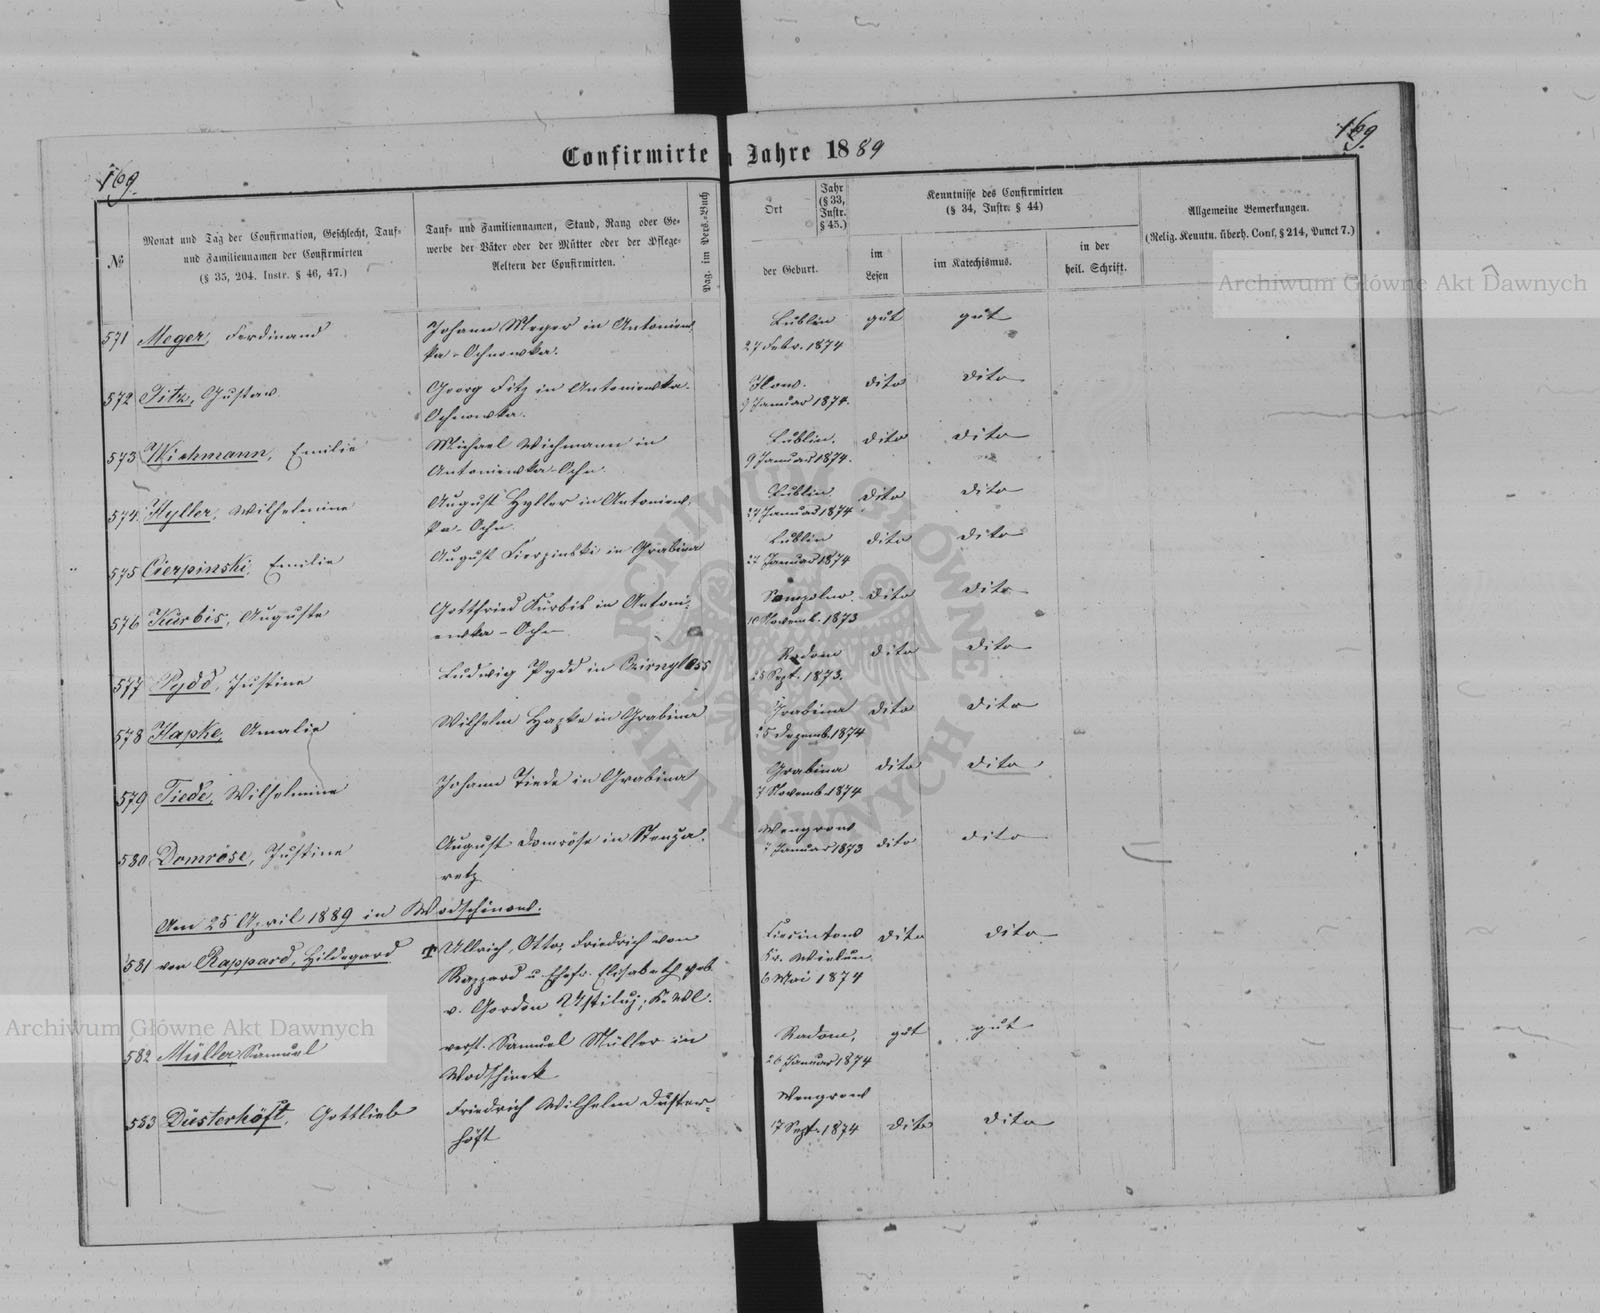 169.
169.
Confirmirte
Jahre 1889
№
Monat und Tag der Confirmation, Geschlecht, Tauf-
und Familiennamen der Confirmirten
(§ 35, 204. Instr. § 46, 47.)
Tauf- und Familiennamen, Stand, Rang oder Ge-
werbe der Väter oder der Mütter oder der Pflege-
Aeltern der Confirmirten.
Pag. im Pers.-Buch
Ort
Jahr
(§ 33,
Instr.
§ 45.)
der Geburt.
Kenntnisse des Confirmirten
(§ 34, Instr. § 44)
im
Lesen
im Katechismus.
in der
heil. Schrift.
Allgemeine Bemerkungen.
(Relig. Kenntn. überh. Conf. § 214, Punct 7.)
571 Meger, Ferdinand
Johann Meger in Antoniew
ka-Ochnowka.
Lublin gut gut
27 Febr. 1874
572 Fitz, Gustav
Georg Fitz in Antoniewka-
Ochnowka.
Ilow. dito dito
9 Januar 1874.
573 Wichmann, Emilie
Michael Wichmann in
Antoniewka-Ochn.
Lublin. dito dito
9 Januar 1874.
574 Hyller, Wilhelmine
August Hyller in Antoniew-
ka-Ochn.
Lublin. dito dito
27 Januar 1874
575 Cierpinski, Emilie
August Cierpinski in Grabina
Lublin dito dito
22 Januar 1874
576 Kürbis, Auguste
Gottfried Kürbis in Antoni-
ewka-Ochn
Sompolno. dito dito
10 Novemb. 1873
577 Pydd, Justine
Ludwig Pydd in
Radom dito dito
25 Sept. 1873.
578 Hapke, Amalie
Wilhelm Hapke in Grabina
Grabina dito dito
25 Dezemb. 1874
579 Tiede, Wilhelmine
Johann Tiede in Grabina
Grabina dito dito
7 Novemb. 1874
580 Domröse, Justine
August Domröse in Stenza-
retz
Wengrow
Januar 1873 dito dito
Am 25 April 1889 in Wodschinow.
581 von Rappard, Hildegard
Ullrich, Otto, Friedrich von
Rappard u. Ehefr. Elisabeth geb.
v. Gordon Ustilug,
dito dito
Kr. Wielun
6 Mai 1874
582 Müller, Samuel
verst. Samuel Müller in
Wodschinek
Radom, gut gut
26 Januar 1874
553 Düsterhöft, Gottlieb
Friedrich Wilhelm Düster-
höft
Wengrow
17 Sept. 1874 dito dito
Archiwum Główne Akt Dawnych
Archiwum Główne Akt Dawnych
ARCHIWUM GŁÓWNE
AKT DAWNYCH